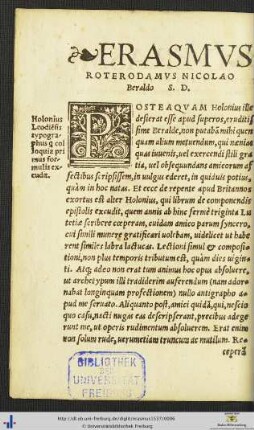 ERASMVS
ROTERODAMVS NICOLAO
Beraldo S. D.
Holonius
Leodiẽsis
typogra-
phus q col
loquia pri
mus for-
mulis ex-
cudit.
POSTEAQVAM Holonius ille
desierat esse apud superos, eruditis
sime Beralde, non putabã mihi quen
quam alium metuendum, qui nænias
quas iuuenis, uel exercendi stili gra
tia, uel obsequundans amicorum af
fectibus scripsissem, in uulgus ederet, in quiduis potius,
quàm in hoc natas. Et ecce de repente apud Britannos
exortus est alter Holonius, qui librum de componendis
epistolis excudit, quem annis ab hinc fermè triginta Lu
tetiæ scribere cœperam, cuidam amico parum syncero,
cui simili munere gratificari uolebam, uidelicet ut habe
rent similes labra lactucas. Lectioni simul & compositio
tioni, non plus temporis tributum est, quàm dies uigin
ti. Atq; adeo non erat tum animus hoc opus absoluere,
ut archetypum illi traditerim auferendum (nam ador-
nabat longinquam profectionem) nullo antigrapho a-
pud me seruato. Aliquanto pòst, amici quidã, qui, nescio
quo casu, nacti nugas eas descripserant, precibus adege
runt me, ut operis rudimentum absoluerem. Erat enim
non solum rude, uerumetiam truncum ac mutilum. Re-
ceptã
BIBLIOTHEK
DER
UNIVERSITÄT
FREIBURG
© Universitätsbibliothek Freiburg